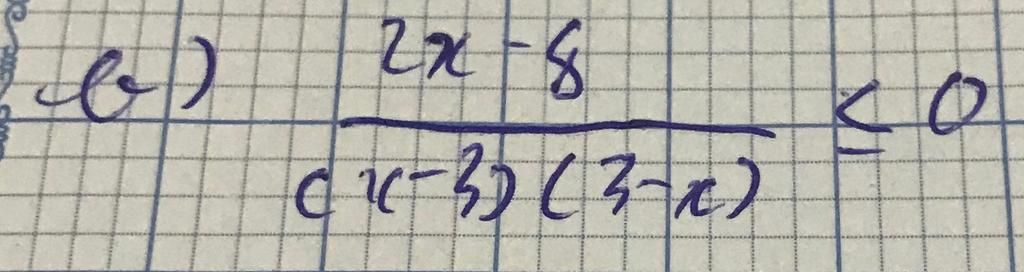 b) 2x - 8
(x-3)(3-x) ≤ 0